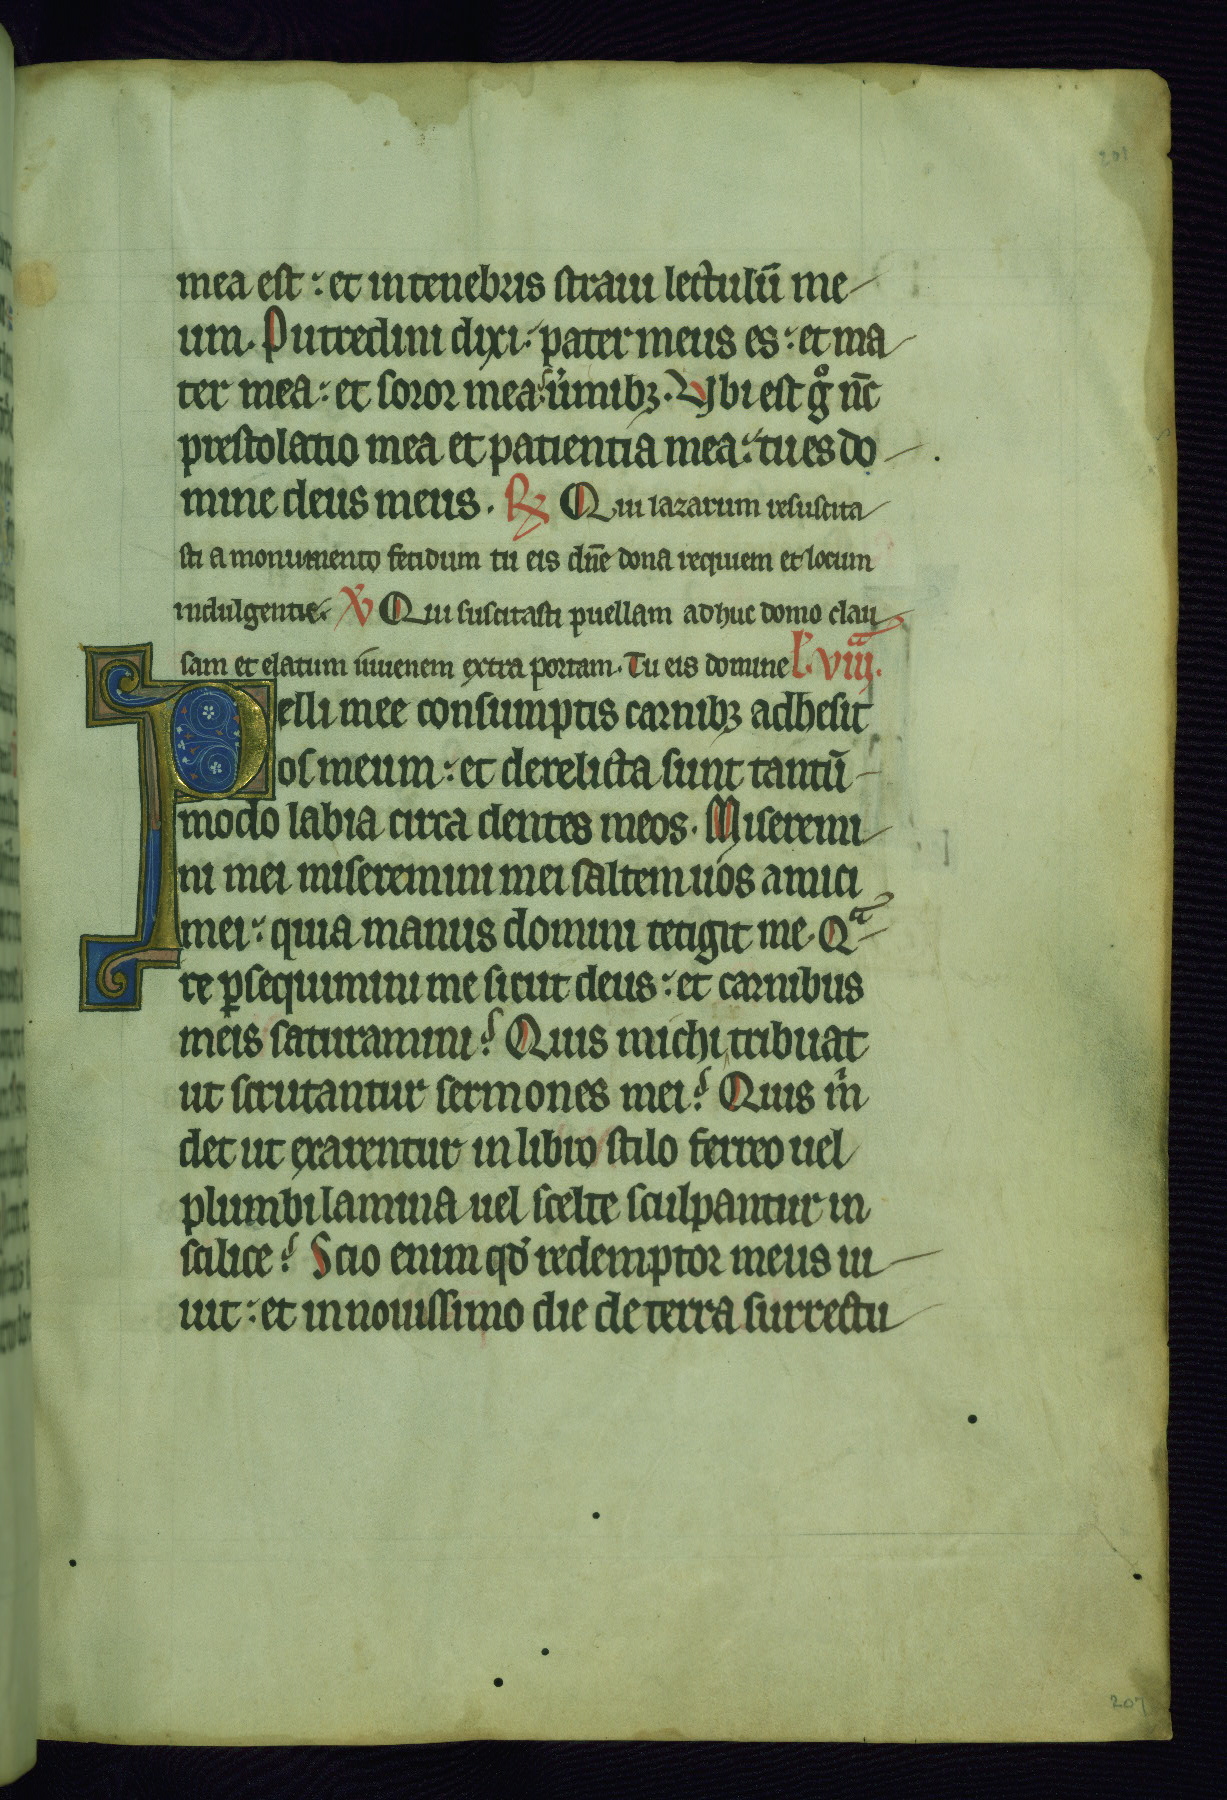 mea est : et in tenebris straui lectulū me
um. Putredini dixi : pater meus es : et ma
ter mea : et soror mea u̾mibꝫ. Vbi est gͦ nc̄
prestolatio mea et patientia mea : tu es do
mine deus meus. R Qui lazarum resuscita
sti a monumento fetidum tu eis dn̄e dona requiem et locum
indulgentie. V Qui suscitasti puellam adhuc domo clau
sam et elatum iuuenem extra portam. Tu eis domine l. viiiᵃ.
Pelli mee consumptis carnibꝫ adhesit
os meum : et derelicta sunt tantū
modo labia circa dentes meos. Miseremi
ni mei miseremini mei saltem uos amici
mei : quia manus domini tetigit me. Qᵃ
re ꝑsequimini me sicut deus : et carnibus
meis saturamini ? Quis michi tribuat
ut scrutantur sermones mei ? Quis m̄
det ut exarentur in libro stilo ferreo uel
plumbi lamina uel scelte sculpantur in
scilice ? Scio enim qď redemptor meus ui
uit : et in nouissimo die de terra surrectu
201
207